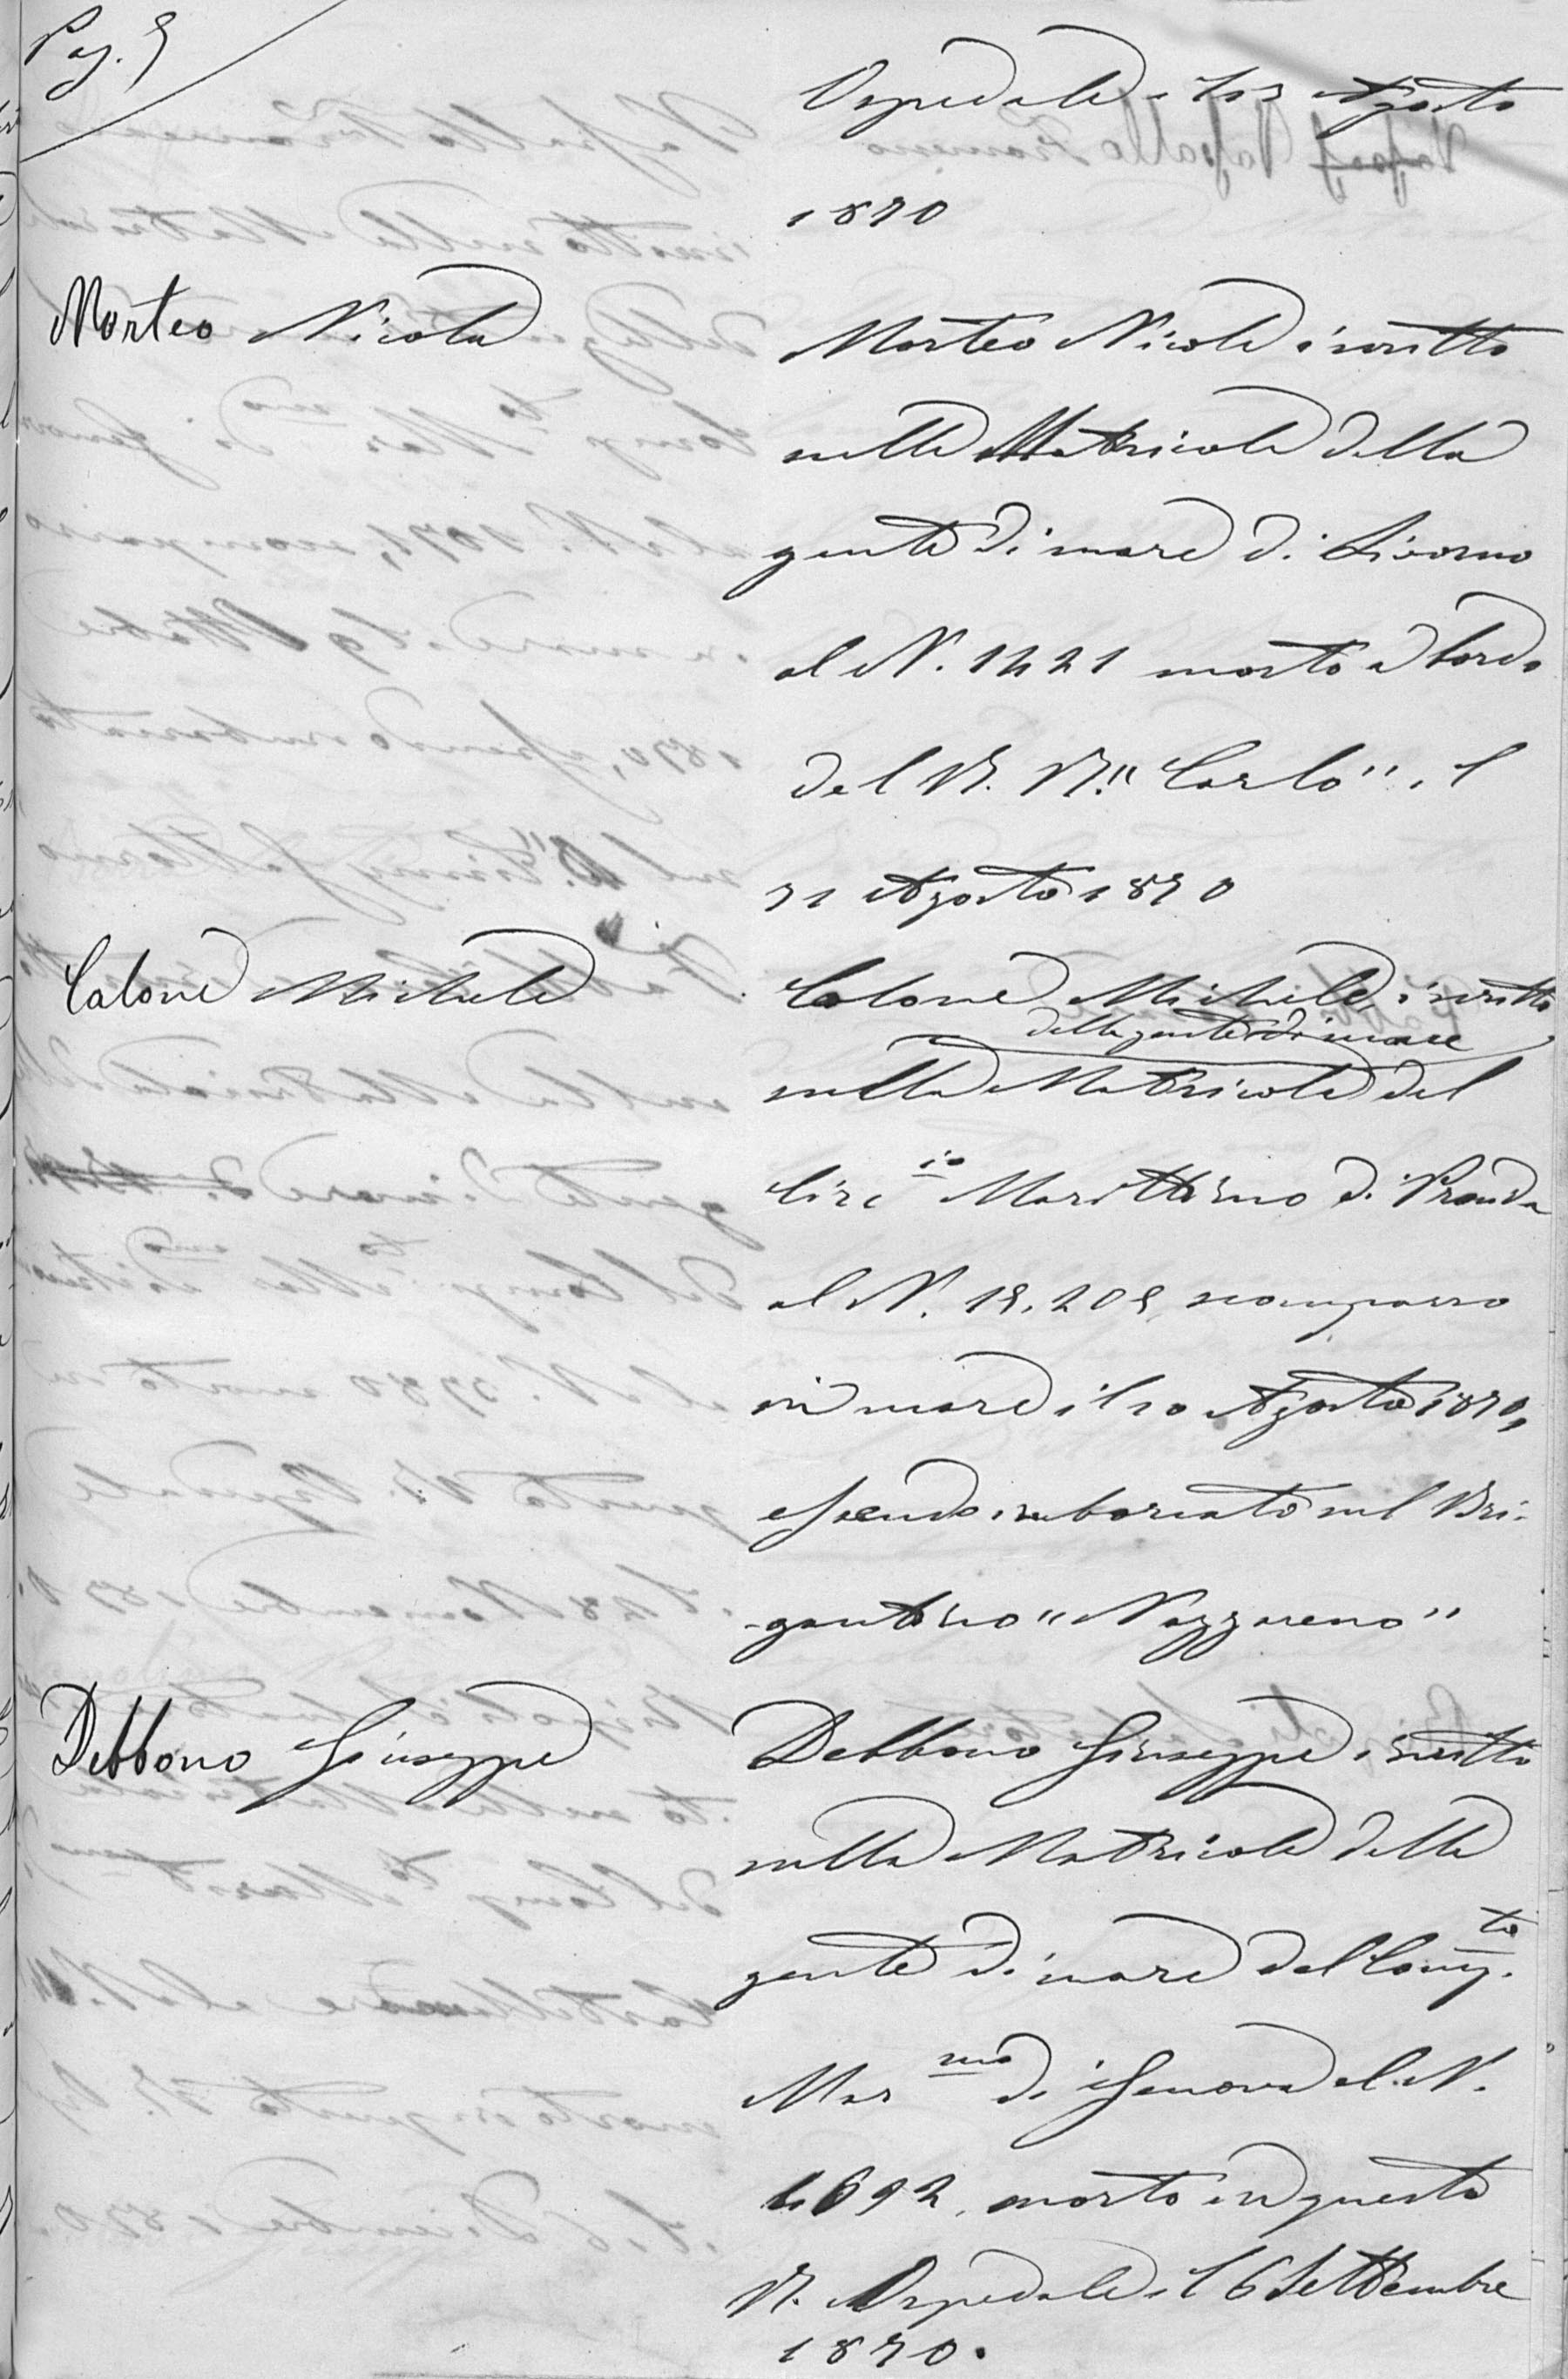 Pag. 5
Ospedale il 13 Agosto
1870
Morteo Nicola
Morteo Nicola iscritto
nella Matricola della
gente di mare di Livorno
al N. 1421 morto a bordo
del B. N. "Carlo" il
31 Agosto 1870
Calone Michele
Calone Michele, iscritto
della gente di mare
nella Matricola del
Circ.io Marittimo di Procida
al N. 15.205, scomparso
in mare il 10 Agosto 1870,
essendo imbarcato sul Bri-
-gantino "Nazzareno"
Debbono Giuseppe
Debbono Giuseppe iscritto
nella Matricola della
gente di mare del Comp.to
Mar.mo di Genova al N.
4692, morto in questo
B. Ospedale il 6 Settembre
1870.